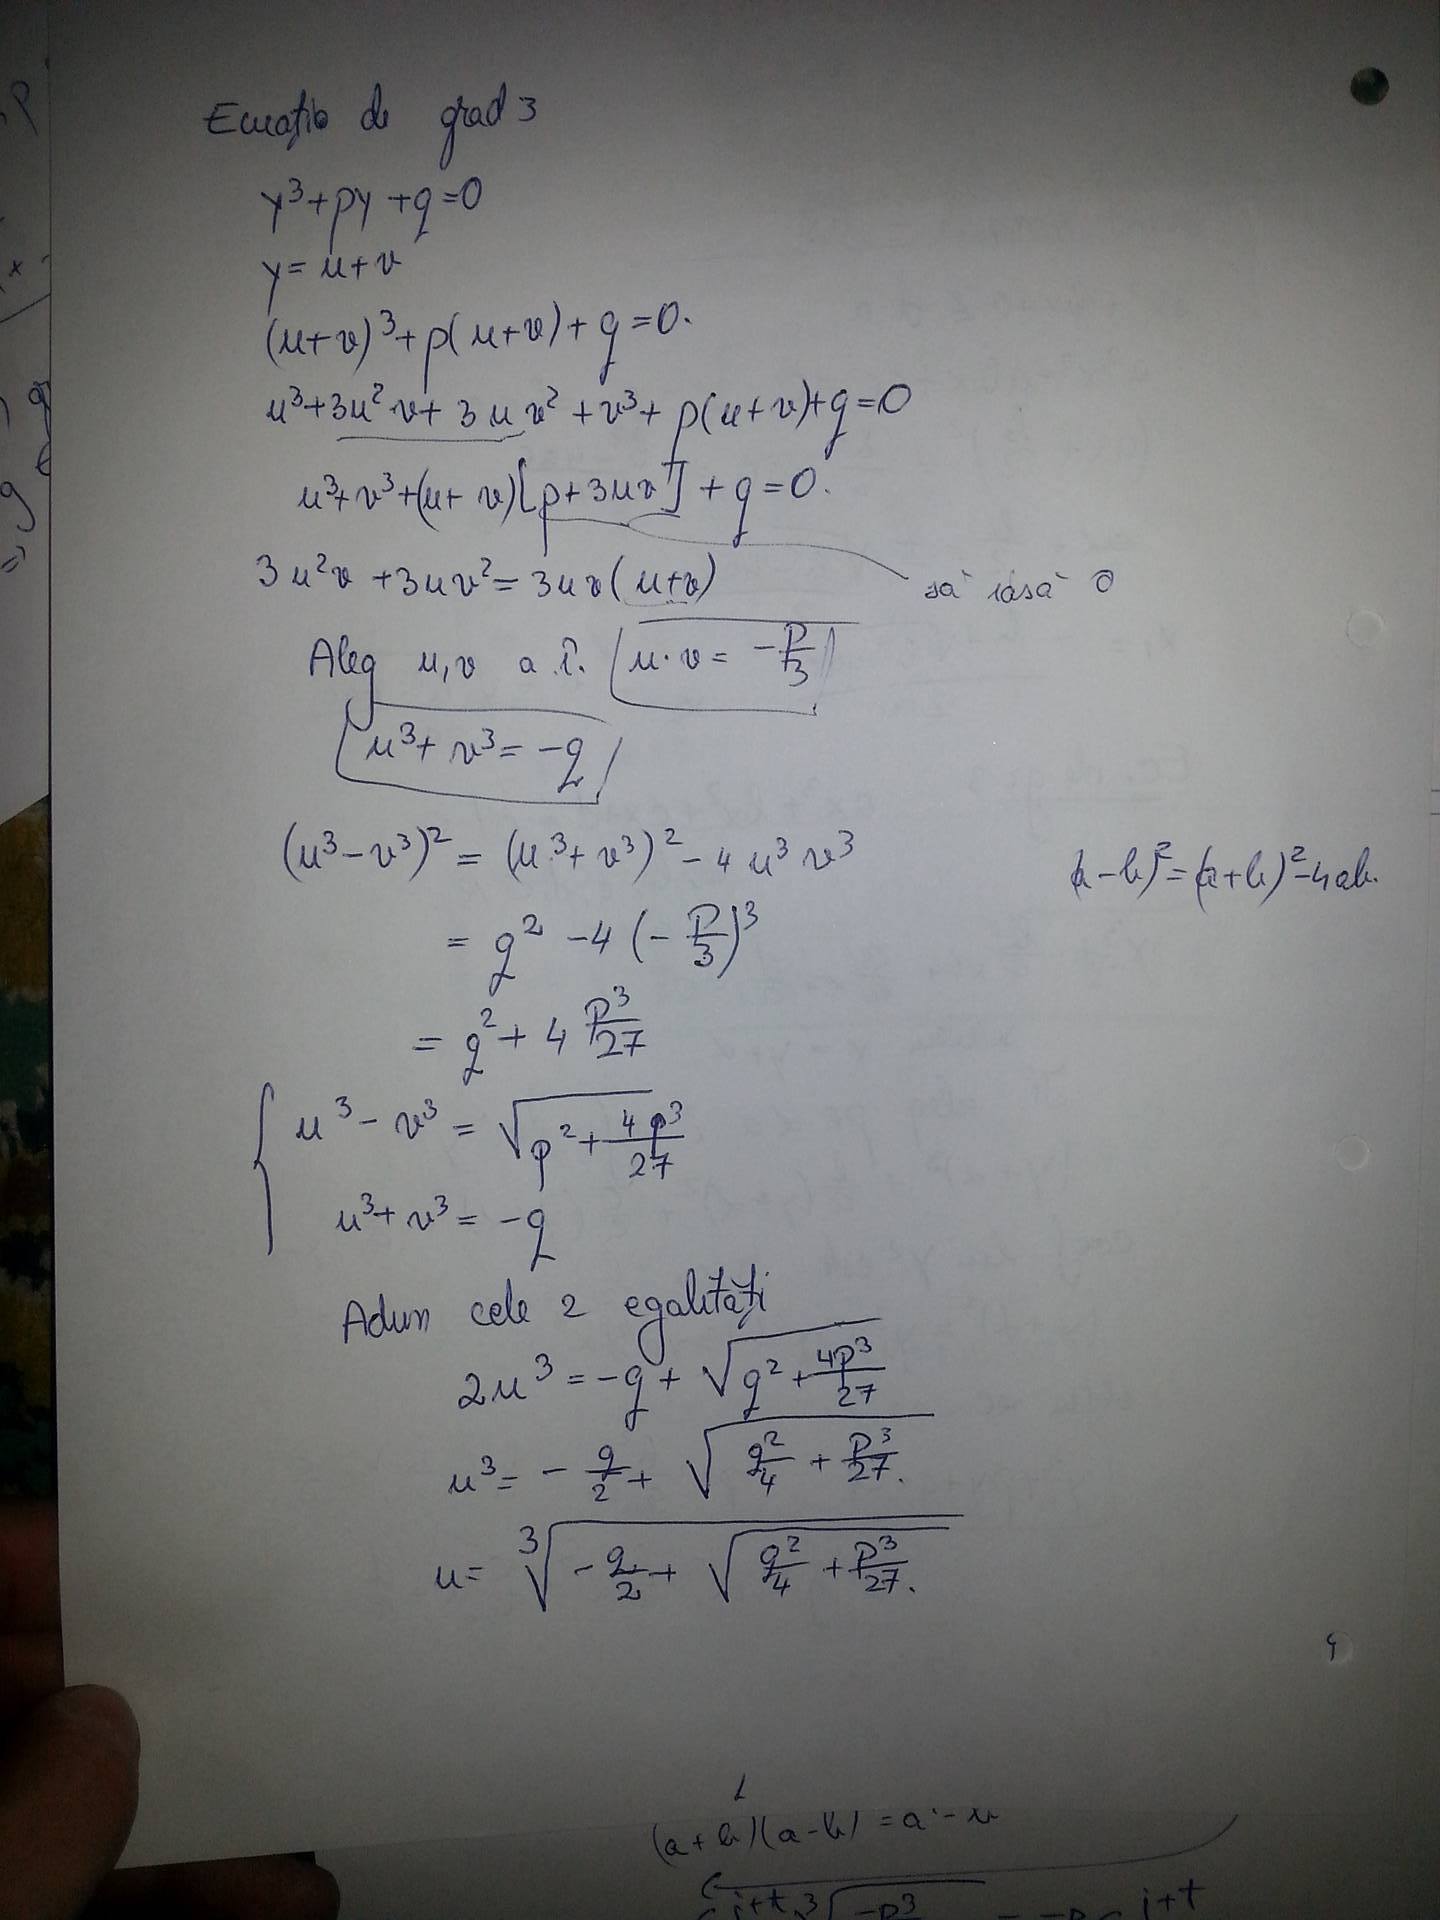 Ecuația de grad 3
y³+py+q=0
y=u+v
(u+v)³+p(u+v)+q=0.
u³+3u²v+3uv²+v³+p(u+v)+q=0
u³+v³+(u+v)[p+3uv]+q=0.
3u²v+3uv²=3uv(u+v)
să iasă 0
Aleg u,v a.î. u·v=-p/3
u³+v³=-q
(u³-v³)²=(u³+v³)²-4u³v³
(a-b)²=(a+b)²-4ab.
=q²-4(-p/3)³
=q²+4p³/27
u³-v³=√(p²+4p³/27)
u³+v³=-q
Adun cele 2 egalități
2u³=-q+√(q²+4p³/27)
u³=-q/2+√(q²/4+p³/27).
u=³√(-q/2+√(q²/4+p³/27)).
(a+b)(a-b)=a